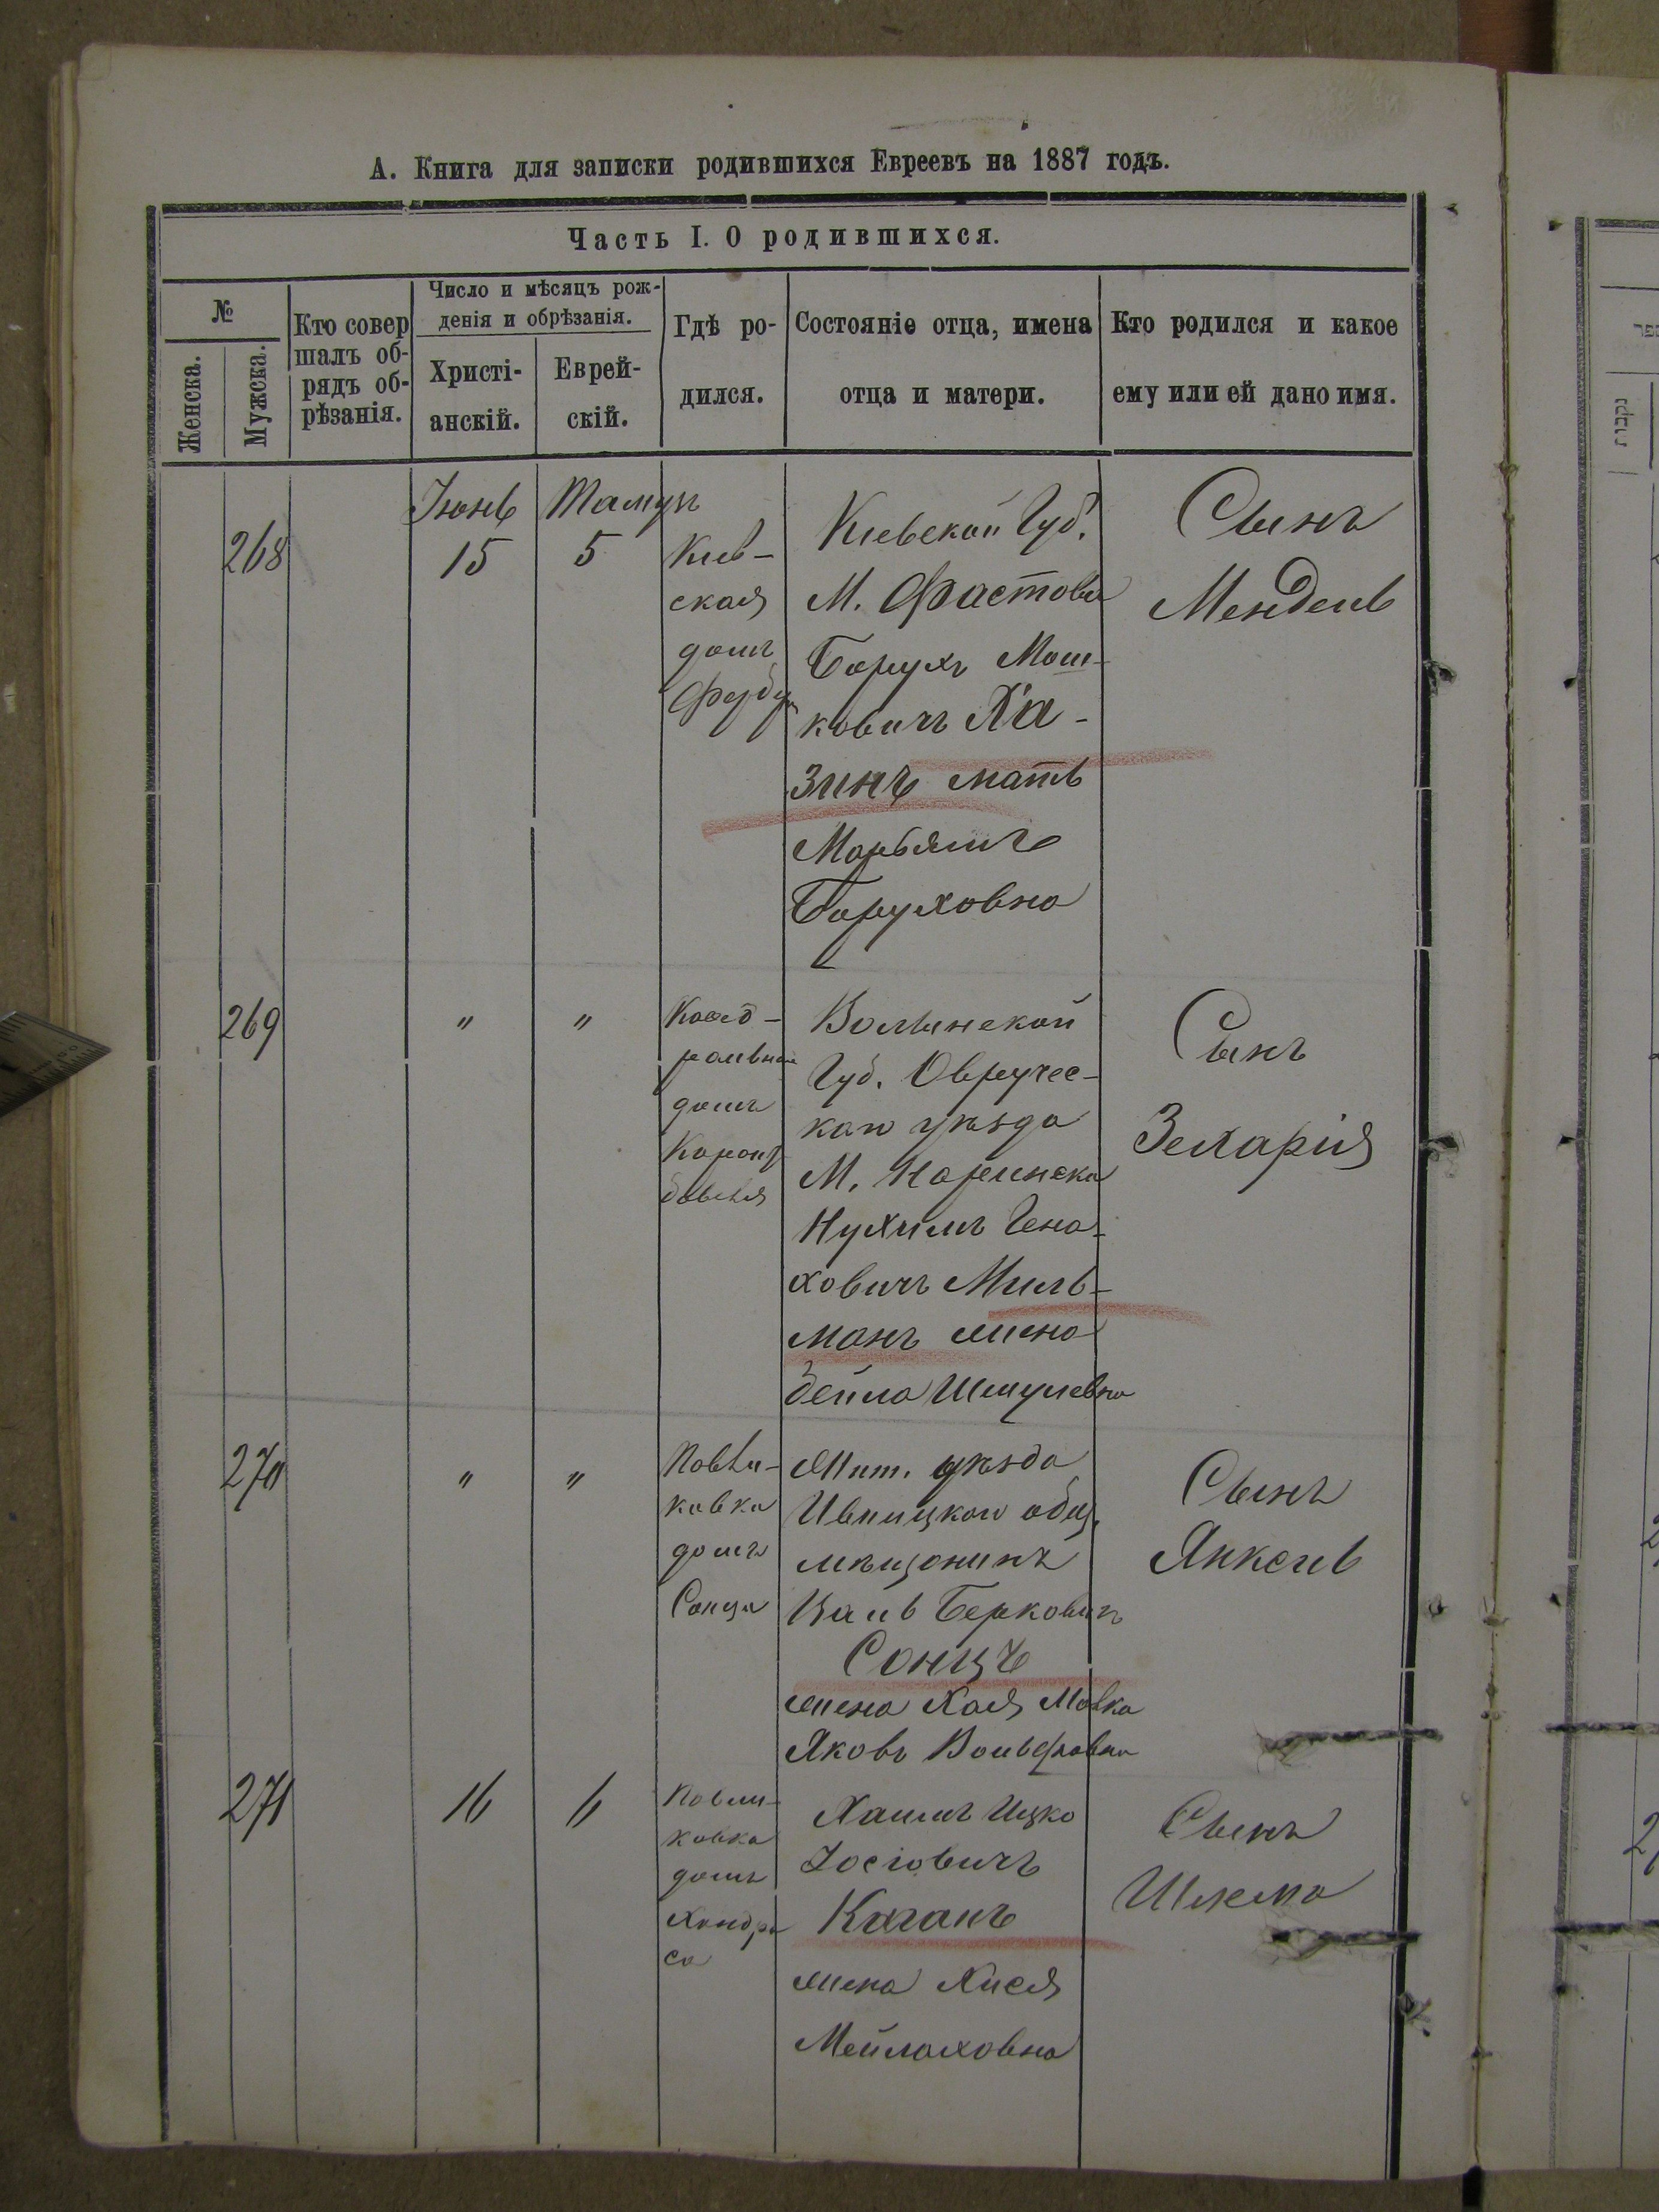 А. Книга для записки родившихся Евреевъ на 1887 годъ.
Часть I. О родившихся.
№
Женска.
Мужска.
Кто совер
шалъ об-
рядъ об-
рѣзанія.
Число и мѣсяцъ рож-
денія и обрѣзанія.
Христі-
анскій.
Еврей-
скій.
Гдѣ ро-
дился.
Состояніе отца, имена
отца и матери.
Кто родился и какое
ему или ей дано имя.
268
Іюнь
15
Тамузъ
5
Кіев-
ская
домъ
Кіевской Губ.
М. Фастова
Борухъ Мош-
ковичъ Ха-
зинъ мать
Марьямъ
Боруховна
Сынъ
Мендель
269
"
"
домъ
Волынской
Губ. Овручес-
каго уѣзда
М. Наринска
Нухимъ Гено-
ховичъ Миль-
манъ жена
Бейла Шмулевна
Сынъ
Зехарія
270
"
"
Павли-
ковка
домъ
Сонца
Жит. уѣзда
Ивницкаго общ.
мѣщанинъ
Берковичъ
Сонцъ
жена Хая Малка
Яковъ Вольфовна
Сынъ
Янкель
271
16
6
Павли-
ковка
домъ
Хондри
са
Хаимъ Ицко
Іосіовичъ
Каганъ
жена Хися
Мейлаховна
Сынъ
Шлема